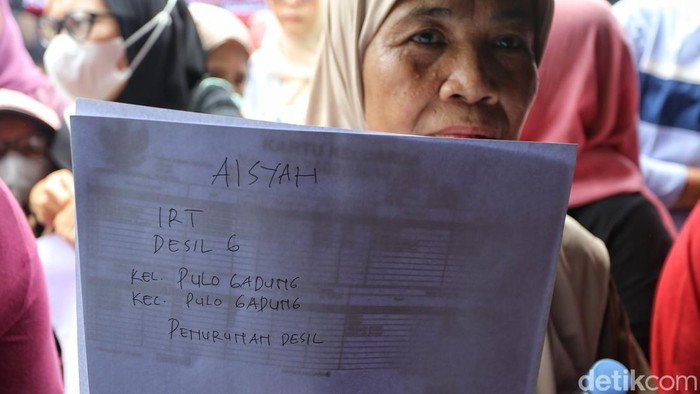 KARTU KELUARGA
AISYAH
IRT
DESIL 6
KEL. PULO GADUNG
KEC. PULO GADUNG
PENURUNAN DESIL
detikcom